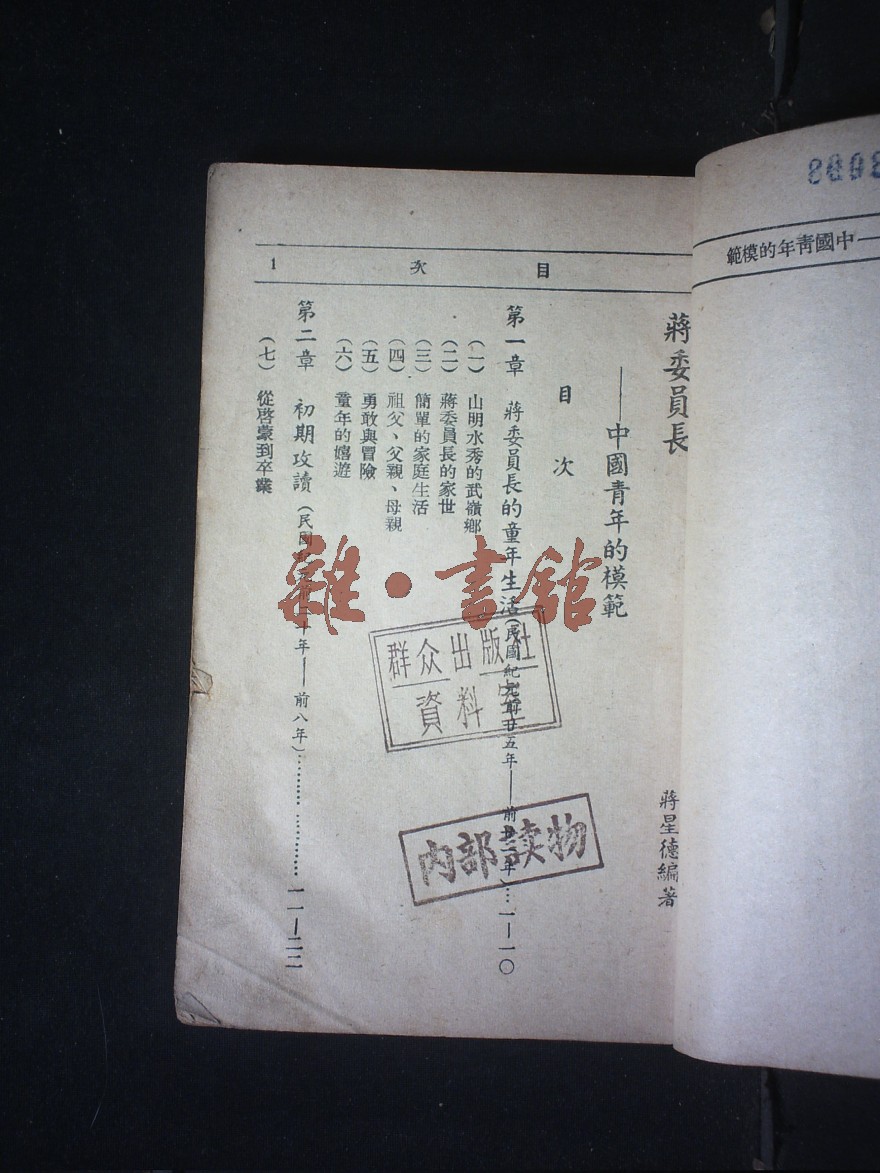 8098
—中國靑年的模範
目次 1
蔣委員長
——中國青年的模範
蔣星德編著
目次
第一章 蔣委員長的童年生活(民國紀元前廿五年——前廿二年)…一—一〇
(一) 山明水秀的武嶺鄉
(二) 蔣委員長的家世
(三) 簡單的家庭生活
(四) 祖父、父親、母親
(五) 勇敢與冒險
(六) 童年的嬉遊
第二章 初期攻讀(民國紀元前二十年——前八年)…………一一—二二
(七) 從啓蒙到卒業
雜·書館
群众出版社
資料室
内部读物